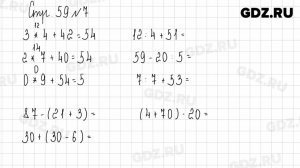 GDZ.RU
Стр. 59 №7
12
3 * 4 + 42 = 54
12 · 4 + 51 =
14
2 * 7 + 40 = 54
59 - 20 · 5 =
0
0 * 9 + 54 = 5
7 · 7 + 33 =
87 - (21 + 3) =
(4 + 70) · 20 =
30 + (30 - 6) =
GDZ.RU